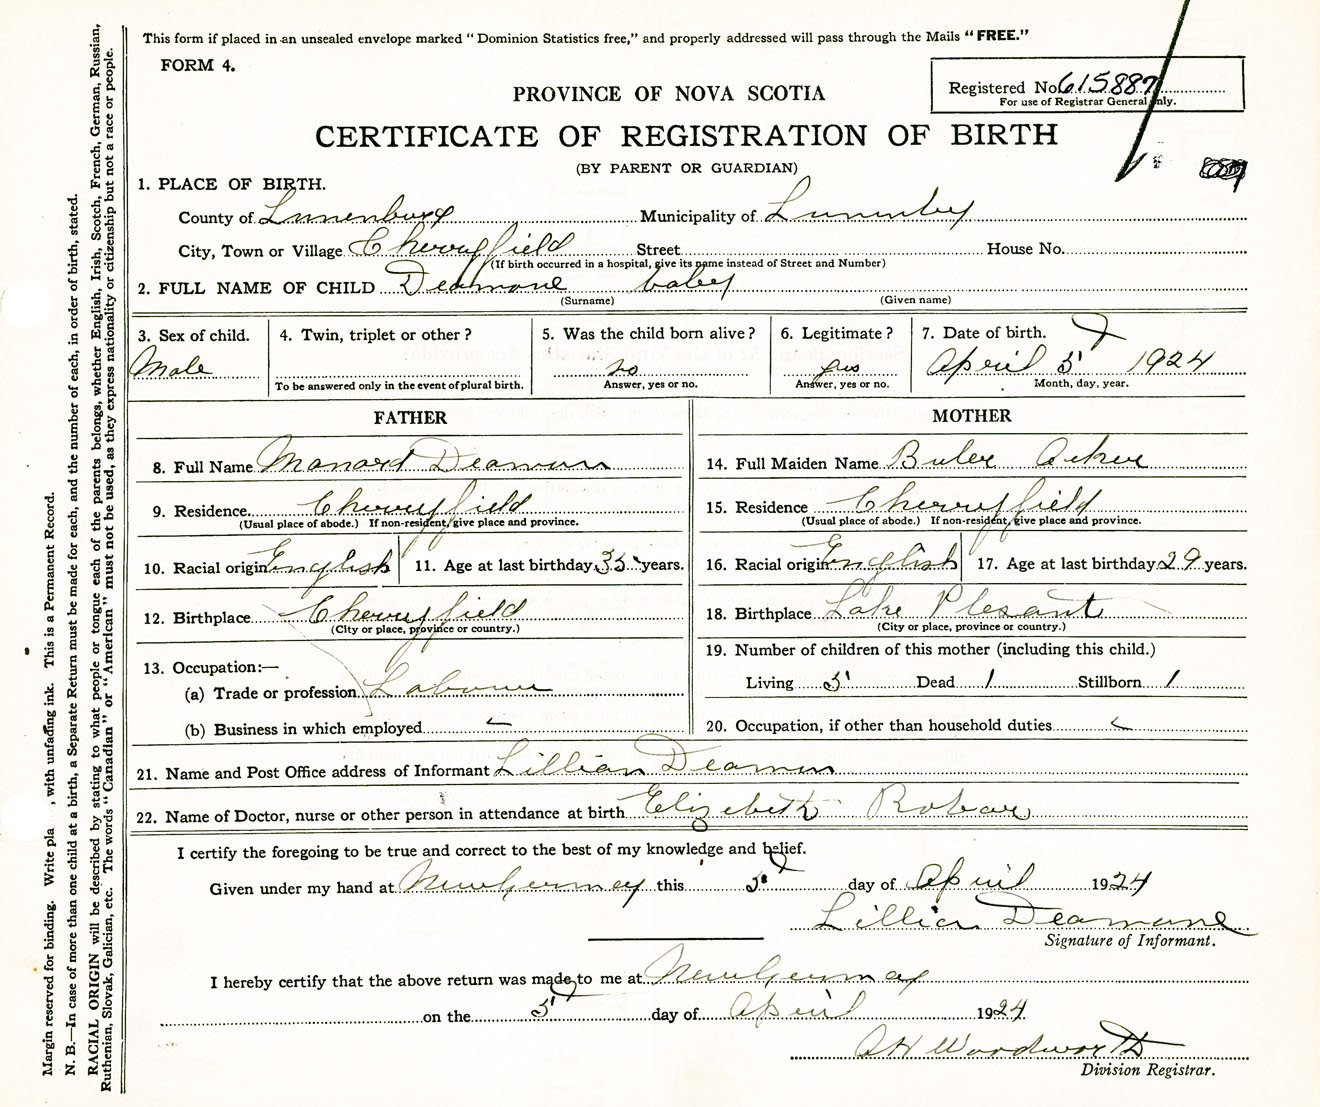 This form if placed in an unsealed envelope marked "Dominion Statistics free," and properly addressed will pass through the Mails "FREE."
FORM 4.
Registered No. 615887
For use of Registrar General only.
PROVINCE OF NOVA SCOTIA
CERTIFICATE OF REGISTRATION OF BIRTH
(BY PARENT OR GUARDIAN)
1. PLACE OF BIRTH.
County of Lunenburg Municipality of
City, Town or Village Cherryfield Street House No.
(If birth occurred in a hospital, give its name instead of Street and Number)
2. FULL NAME OF CHILD Deamone baby
(Surname) (Given name)
3. Sex of child. 4. Twin, triplet or other? 5. Was the child born alive? 6. Legitimate? 7. Date of birth.
Male no yes April 5 1924
To be answered only in the event of plural birth. Answer, yes or no. Answer, yes or no. Month, day, year.
FATHER MOTHER
8. Full Name Manard 14. Full Maiden Name Buler Acker
9. Residence Cherryfield 15. Residence Cherryfield
(Usual place of abode.) If non-resident, give place and province. (Usual place of abode.) If non-resident, give place and province.
10. Racial origin English 11. Age at last birthday 35 years. 16. Racial origin English 17. Age at last birthday 29 years.
12. Birthplace Cherryfield 18. Birthplace Lake Plesant
(City or place, province or country.) (City or place, province or country.)
13. Occupation:— 19. Number of children of this mother (including this child.)
(a) Trade or profession Labourer Living 5 Dead 1 Stillborn 1
(b) Business in which employed 20. Occupation, if other than household duties
21. Name and Post Office address of Informant Lillian
22. Name of Doctor, nurse or other person in attendance at birth Elizebeth Robar
I certify the foregoing to be true and correct to the best of my knowledge and belief.
Given under my hand at New Germany this 5 day of April 1924
Lillian Deamone
Signature of Informant.
I hereby certify that the above return was made to me at New Germany
on the 5 day of April 1924
A H Woodworth
Division Registrar.
Margin reserved for binding. Write pla , with unfading ink. This is a Permanent Record.
N. B.—In case of more than one child at a birth, a Separate Return must be made for each, and the number of each, in order of birth, stated.
RACIAL ORIGIN will be described by stating to what people or tongue each of the parents belongs, whether English, Irish, Scotch, French, German, Russian,
Ruthenian, Slovak, Galician, etc. The words "Canadian" or "American" must not be used, as they express nationality or citizenship but not a race or people.